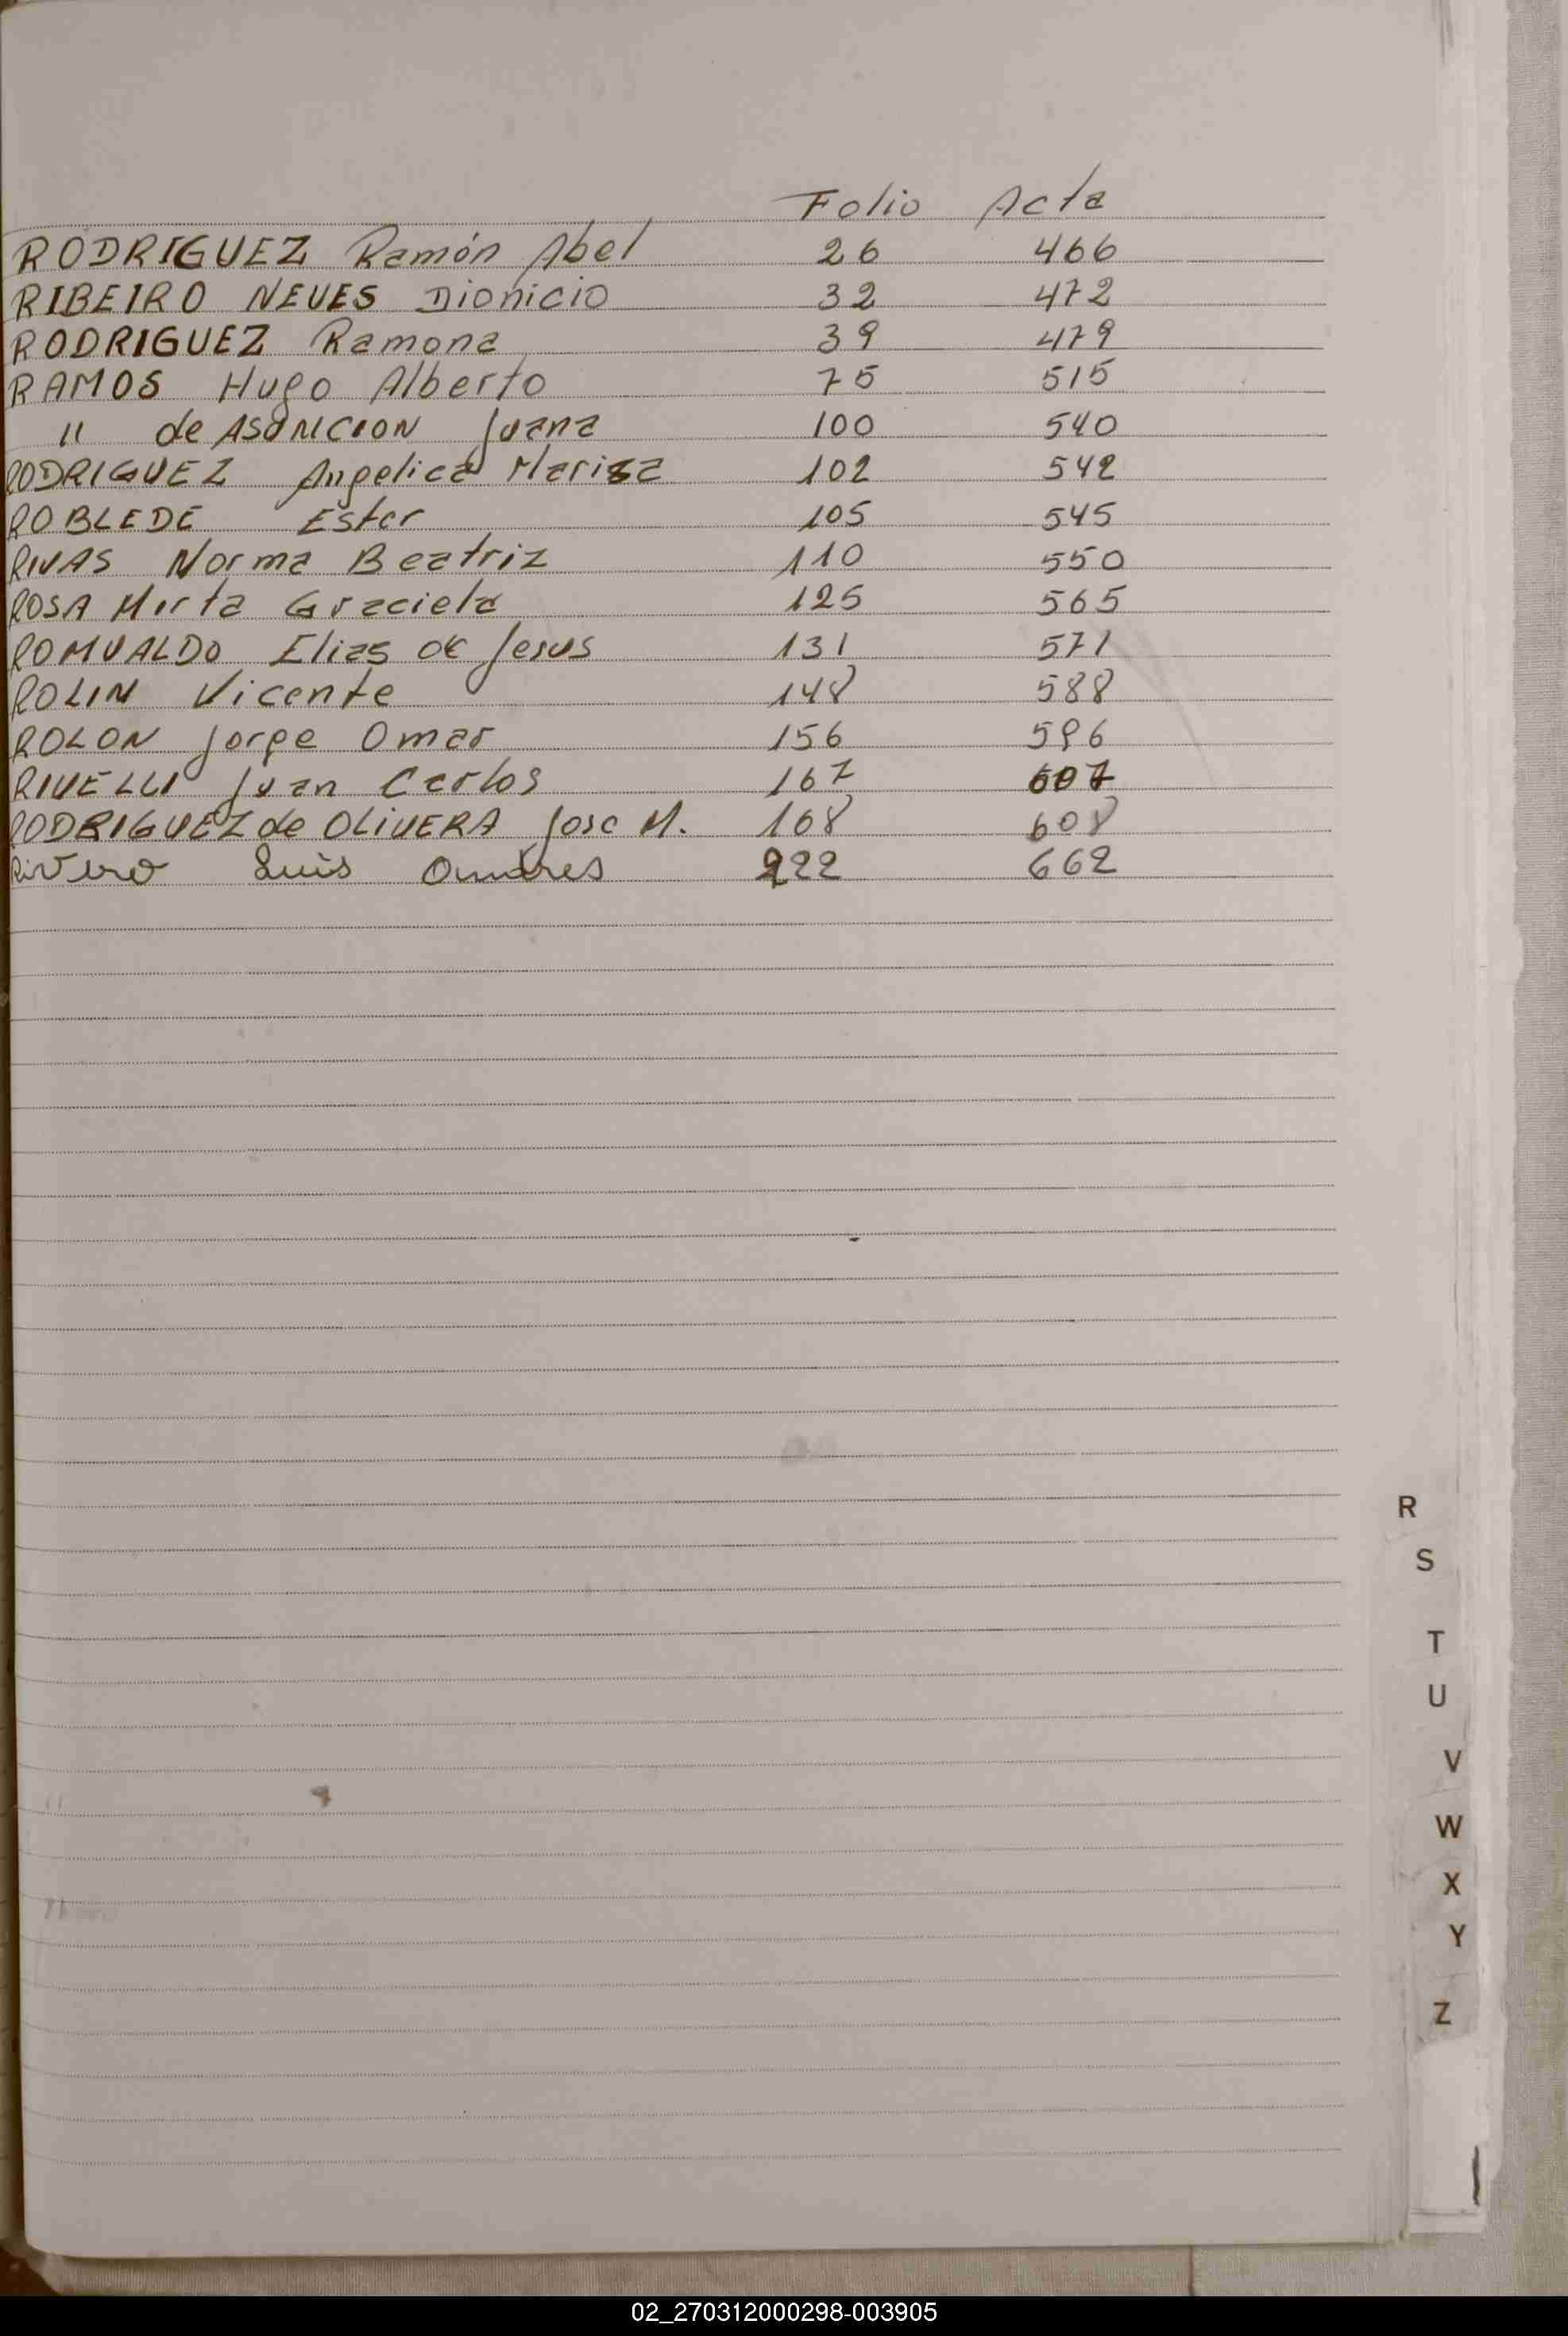 Folio Acta
RODRIGUEZ Ramón Abel 26 466
RIBEIRO NEVES Dionicio 32 472
RODRIGUEZ Ramona 39 479
RAMOS Hugo Alberto 75 515
" de ASUNCION Juana 100 540
RODRIGUEZ Angelica Marisa 102 542
ROBLEDE Ester 105 545
RIVAS Norma Beatriz 110 550
ROSA Mirta Graciela 125 565
ROMUALDO Elias de Jesus 131 571
ROLIN Vicente 148 588
ROLON Jorge Omar 156 596
RIVELLI Juan Carlos 167 607
RODRIGUEZ de OLIVERA Jose M. 168 608
Rivero Luis 222 662
R
S
T
U
V
W
X
Y
Z
02_270312000298-003905